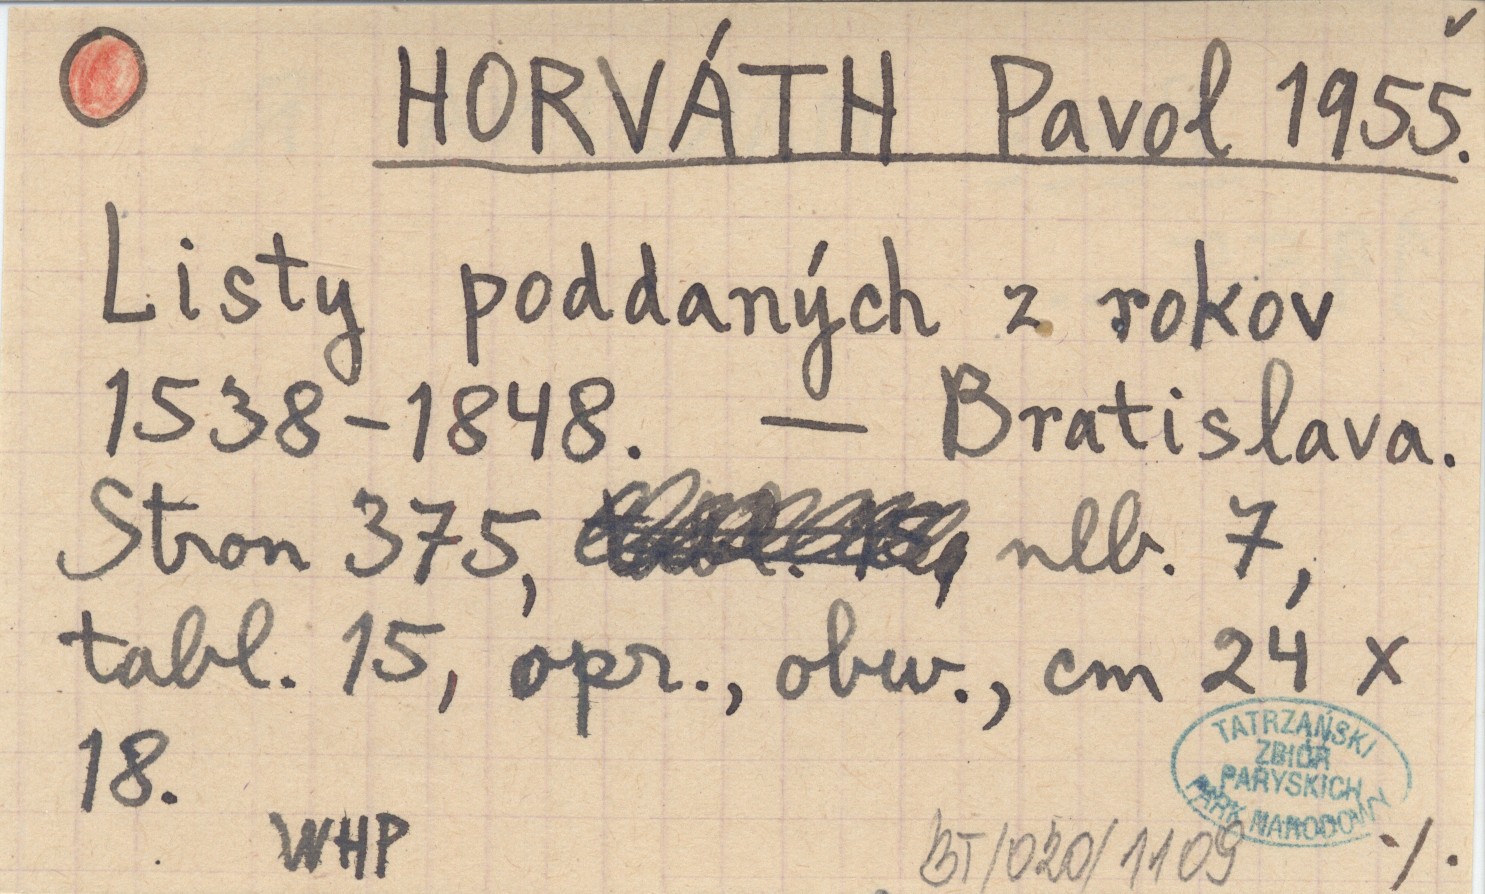 HORVÁTH Pavol 1955.
Listy poddaných z rokov
1538-1848. — Bratislava.
Stron 375, nlb. 7,
tabl. 15, opr., obw., cm 24 x
18.
WHP
TATRZAŃSKI
ZBIÓR
PARYSKICH
PARK NARODOWY
BT/020/1109
-/.